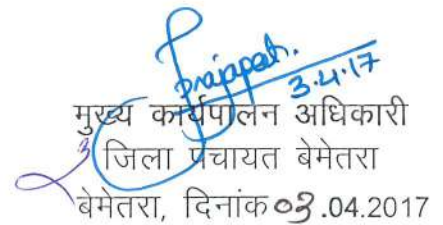 prajapati.
3.4.17
मुख्य कार्यपालन अधिकारी
जिला पंचायत बेमेतरा
बेमेतरा, दिनांक 03.04.2017